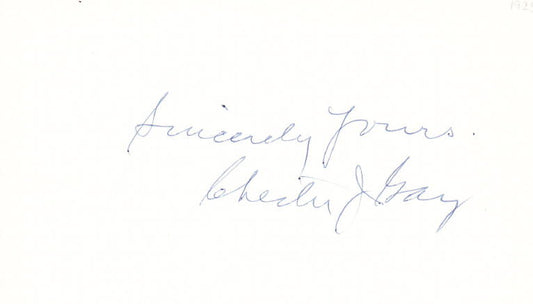 Sincerely Yours.
Chester J Gay